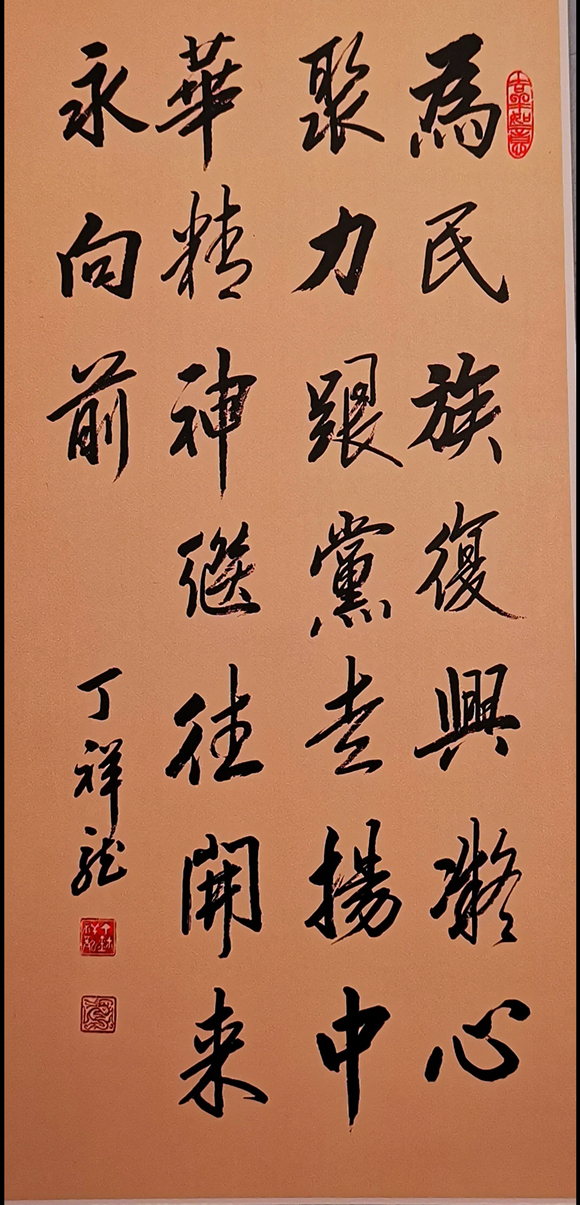 為民族復興凝心
聚力跟黨走揚中
華精神繼往開来
永向前
丁祥龙